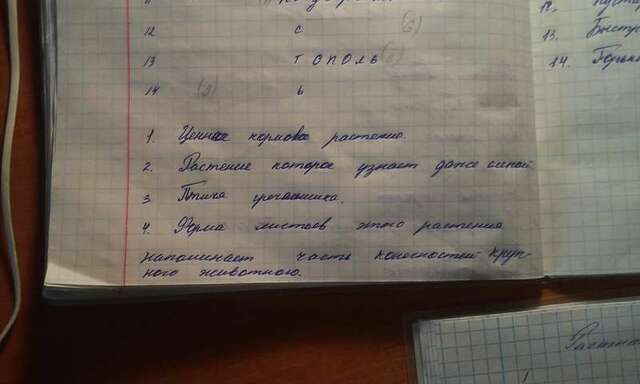 11
12 с (6)
13 тополь
14 (9) ь
1. Ценное кормовое растение.
2. Растение которое узнает даже слепой
3 Птица
4. Форма листьев этого растения
напоминает часть конечностей круп-
ного животного.
12.
13. Быстр
14. Горьк
Растит